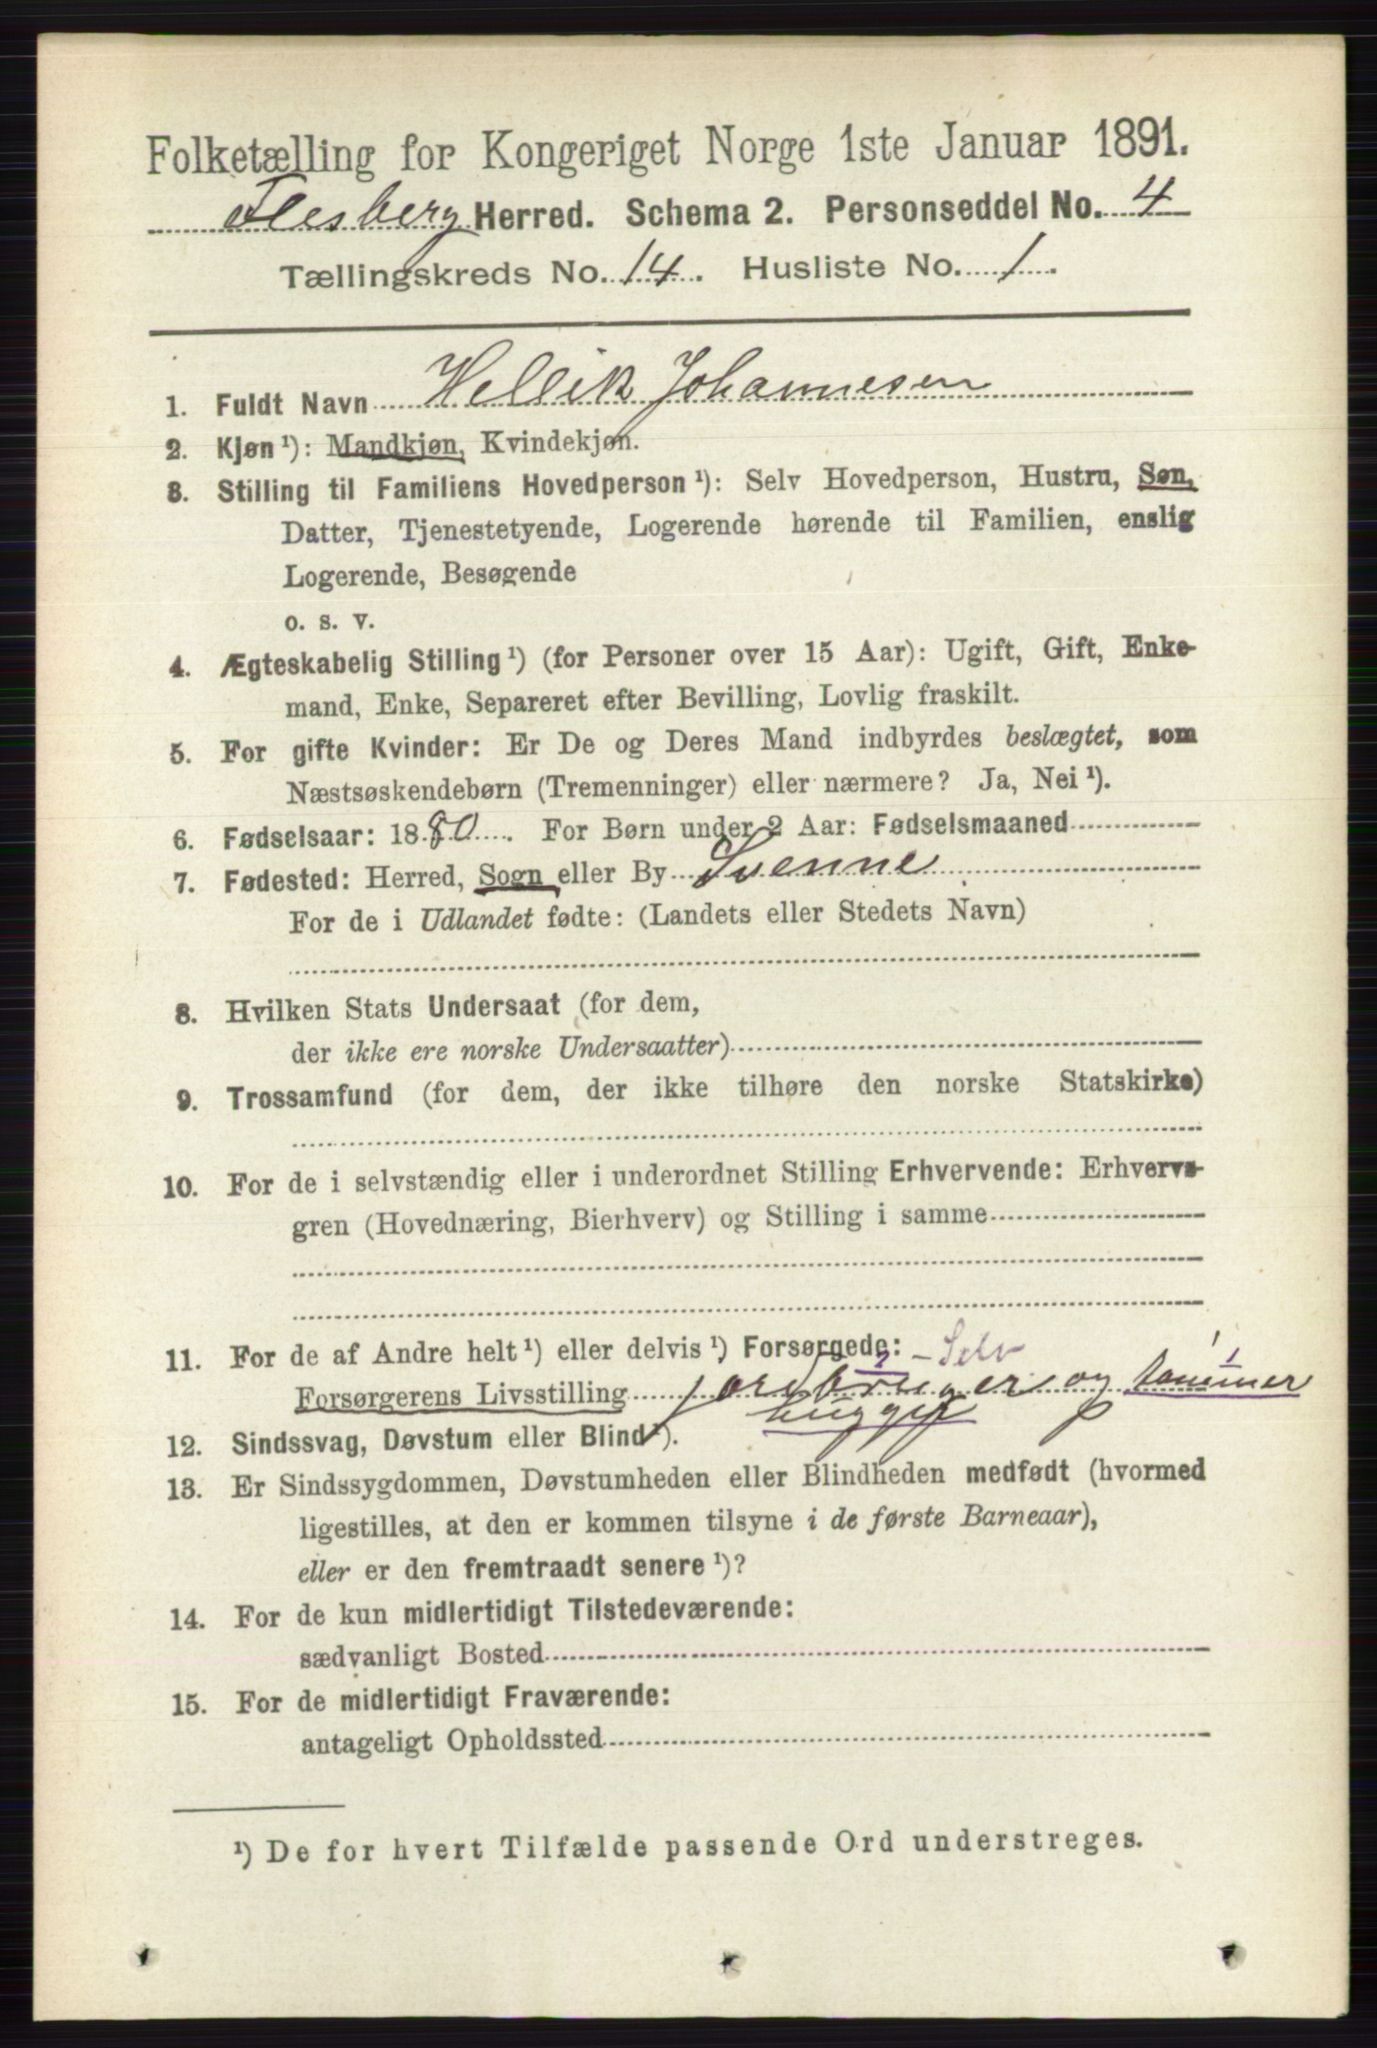 Folketælling for Kongeriget Norge 1ste Januar 1891.
Flesberg Herred. Schema 2. Personseddel No. 4
Tællingskreds No. 14. Husliste No. 1.
1. Fuldt Navn Hellik Johannesen
2. Kjøn ¹): Mandkjøn, Kvindekjøn.
3. Stilling til Familiens Hovedperson ¹): Selv Hovedperson, Hustru, Søn,
Datter, Tjenestetyende, Logerende hørende til Familien, enslig
Logerende, Besøgende
o. s. v.
4. Ægteskabelig Stilling ¹) (for Personer over 15 Aar): Ugift, Gift, Enke-
mand, Enke, Separeret efter Bevilling, Lovlig fraskilt.
5. For gifte Kvinder: Er De og Deres Mand indbyrdes beslægtet, som
Næstsøskendebørn (Tremenninger) eller nærmere? Ja, Nei ¹).
6. Fødselsaar: 1880. For Børn under 2 Aar: Fødselsmaaned
7. Fødested: Herred, Sogn eller By Svenne
For de i Udlandet fødte: (Landets eller Stedets Navn)
8. Hvilken Stats Undersaat (for dem,
der ikke ere norske Undersaatter)
9. Trossamfund (for dem, der ikke tilhøre den norske Statskirke)
10. For de i selvstændig eller i underordnet Stilling Erhvervende: Erhvervs-
gren (Hovednæring, Bierhverv) og Stilling i samme
11. For de af Andre helt ¹) eller delvis ¹) Forsørgede: - Selv
Forsørgerens Livsstilling jordbruger og tømmer
hugger
12. Sindssvag, Døvstum eller Blind ¹).
13. Er Sindssygdommen, Døvstumheden eller Blindheden medfødt (hvormed
ligestilles, at den er kommen tilsyne i de første Barneaar),
eller er den fremtraadt senere ¹)?
14. For de kun midlertidigt Tilstedeværende:
sædvanligt Bosted
15. For de midlertidigt Fraværende:
antageligt Opholdssted
¹) De for hvert Tilfælde passende Ord understreges.